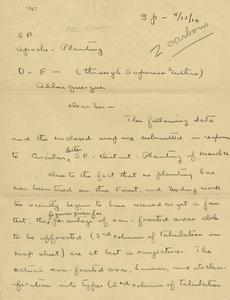 3 p - 4/12/10
2 carbons
S P
Apache - Planting
D - F - (through Supervisor
Albuquerque
Dear Sir -
The following data
and the enclosed map are submitted in response
to Circular letter S.P. - District - Planting of March
Due to the fact that no planting has
ever been tried on this Forest, and seeding work
too recently begun to have received as yet a fair
test; the figures given for percentage of non-forested areas able
to be afforested (3rd column of tabulation on
map sheet) are at best a conjecture. The
actual non-forested area, however, and its class-
ification into types (2nd column of tabulation